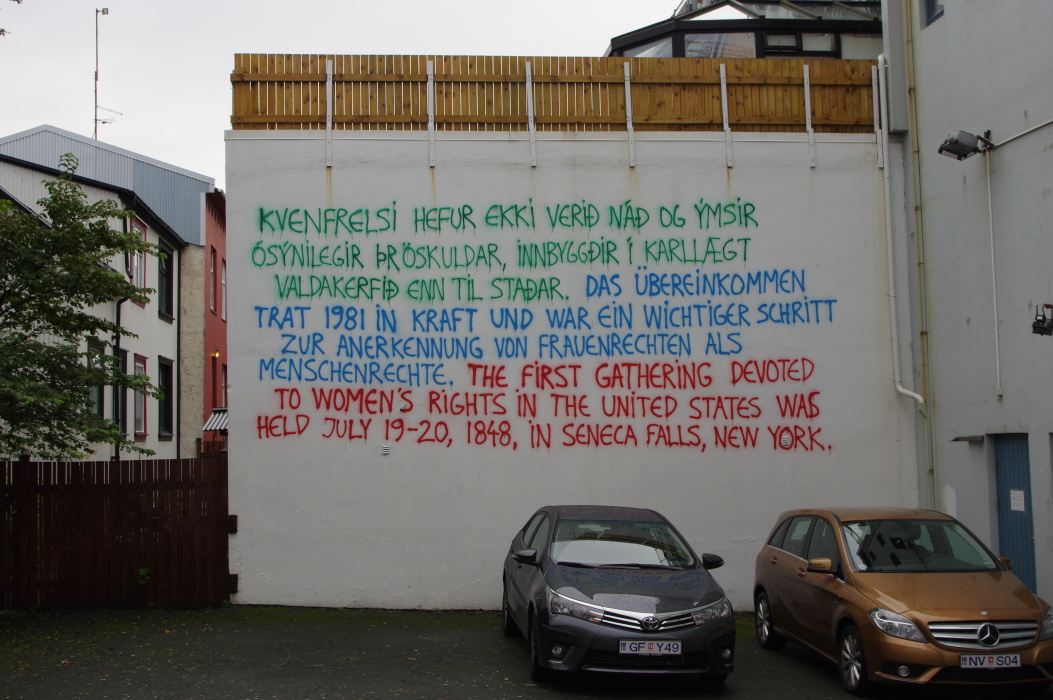 KVENFRELSI HEFUR EKKI VERIÐ NÁÐ OG ÝMSIR
ÓSÝNILEGIR ÞRÖSKULDAR, INNBYGGÐIR Í KARLLÆGT
VALDAKERFIÐ ENN TIL STAÐAR. DAS ÜBEREINKOMMEN
TRAT 1981 IN KRAFT UND WAR EIN WICHTIGER SCHRITT
ZUR ANERKENNUNG VON FRAUENRECHTEN ALS
MENSCHENRECHTE. THE FIRST GATHERING DEVOTED
TO WOMEN'S RIGHTS IN THE UNITED STATES WAS
HELD JULY 19-20, 1848, IN SENECA FALLS, NEW YORK.
GF Y49
NV S04